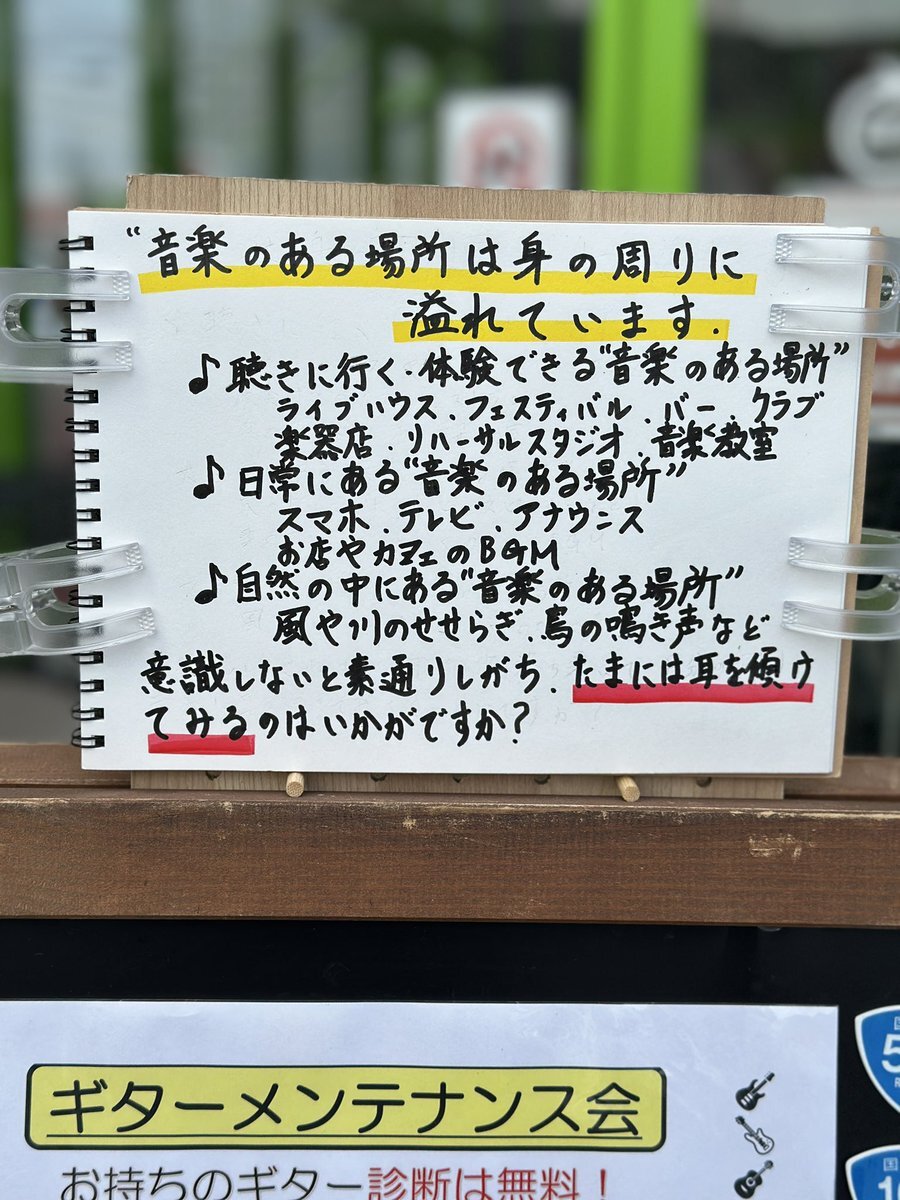 “音楽のある場所は身の周りに
溢れています.
♪聴きに行く・体験できる“音楽のある場所”
ライブハウス、フェスティバル、バー、クラブ
楽器店、リハーサルスタジオ、音楽教室
♪日常にある“音楽のある場所”
スマホ、テレビ、アナウンス
お店やカフェのBGM
♪自然の中にある“音楽のある場所”
風や川のせせらぎ、鳥の鳴き声など
意識しないと素通りしがち、たまには耳を傾け
てみるのはいかがですか?
ギターメンテナンス会
お持ちのギター診断は無料!
国
5
国